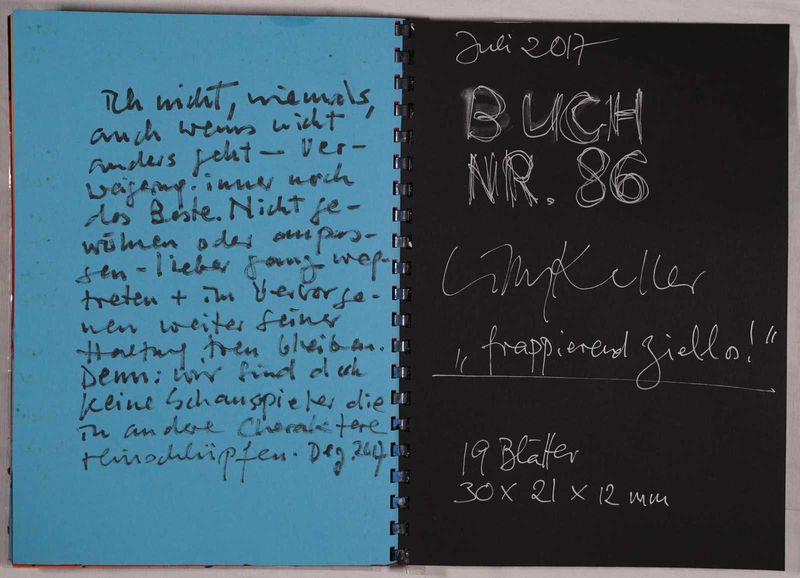 Ich nicht, niemals,
auch wenns nicht
anders geht – Ver-
weigerung immer noch
das Beste. Nicht ge-
wöhnen oder anpas-
sen – lieber ganz weg-
treten + im Verborge-
nen weiter seiner
Haltung treu bleiben.
Denn: wir sind doch
keine Schauspieler die
in andere Charaktere
reinschlüpfen. Dez.
Juli 2017
BUCH
NR. 86
Lilly Keller
„frappierend ziellos!“
19 Blätter
30 x 21 x 12 mm